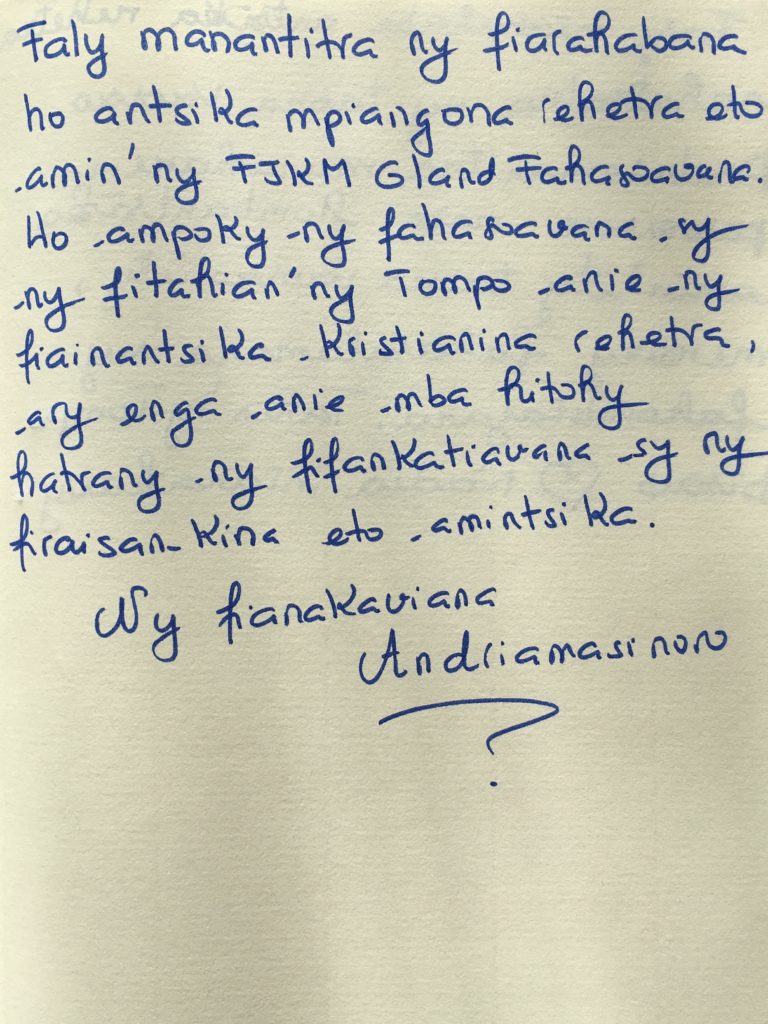 Faly manantitra ny fiarahabana
ho antsika mpiangona rehetra eto
amin'ny FJKM Gland Fahasoavana.
Ho ampoky ny fahasoavana sy
ny fitahian'ny Tompo anie ny
fiainantsika Kristianina rehetra,
ary enga anie mba hitohy
hatrany ny fifankatiavana sy ny
firaisan-kina eto amintsika.
Ny fianakaviana
Andriamasinoro